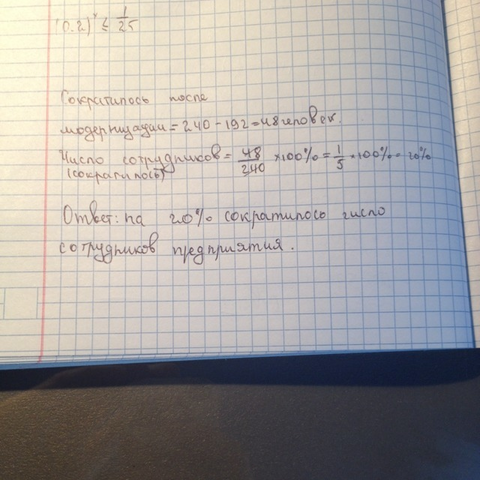 (0.2)ˣ ≤ 1/25
Сократилось после
модернизации = 240 - 192 = 48 человек.
Число сотрудников = 48/240 × 100% = 1/5 · 100% = 20%
(сократилось)
Ответ: на 20% сократилось число
сотрудников предприятия.